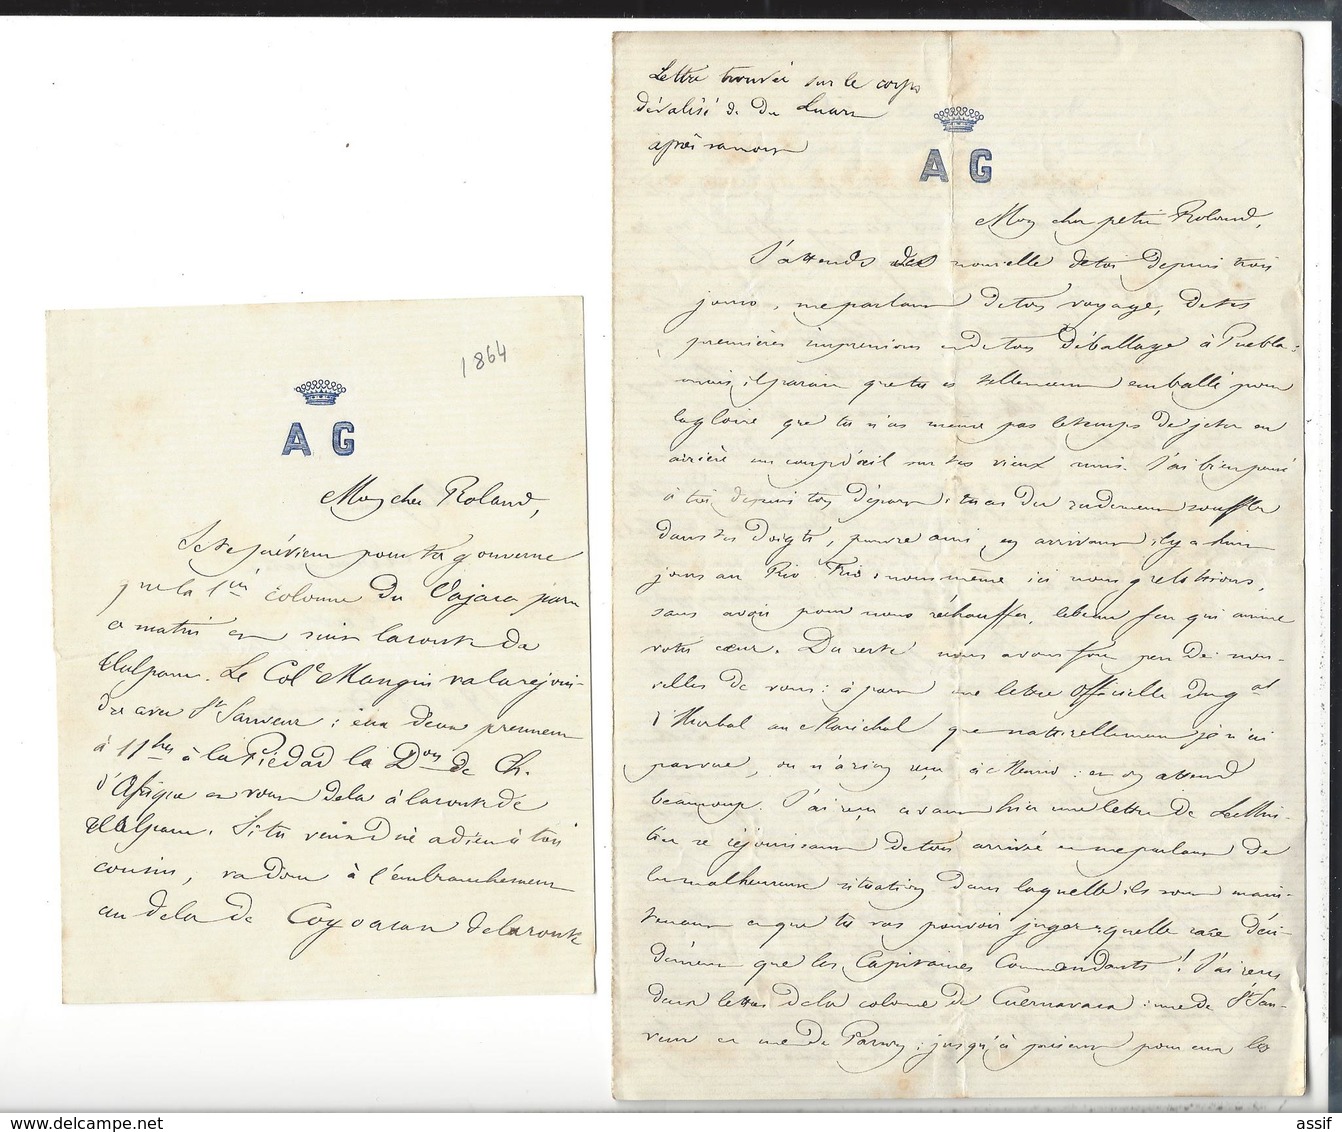 1864
A G
Mon cher Roland,
Je te préviens pour ta gouverne
que la 1ère colonne du Oajaca part
ce matin et suit la route de
Tlalpam. Le Col. Mangin va la rejoin-
dre avec St Sauveur : eux deux prennent
à 11 hes à la Piedad la Don de Ch.
d'Afrique et vont de là à la route de
Tlalpam. Si tu veux dire adieu à ton
cousin, va donc à l'embranchement
au delà de Coyoacan de la route
Lettre trouvée sur le corps
dévalisé de Du Luart
après sa mort
A G
Mon cher petit Roland,
J'attends des nouvelle de toi depuis trois
jours, me parlant de ton voyage, de tes
premières impressions et de ton déballage à Puebla :
mais, il parait que tu es tellement emballé pour
la gloire que tu n'as même pas le temps de jeter en
arrière un coup d'œil sur tes vieux amis. J'ai bien pensé
à toi depuis ton départ : tu as du rudement souffler
dans tes doigts, pauvre ami, en arrivant il y a huit
jours au Rio Frio : nous même ici nous grelottions,
sans avoir pour nous réchauffer, le beau feu qui anime
votre cœur. Du reste nous avons fort peu de nou-
velles de vous : à part une lettre officielle du gal
l'Herbal au Maréchal que naturellement je n'ai
pas vue, on n'a rien reçu à Mexico : et on attend
beaucoup. J'ai reçu avant hier une lettre de
se réjouissant de ton arrivée et me parlant de
la malheureuse situation dans laquelle ils sont main-
tenant et que tu vas pouvoir juger : quelle race déci-
dément que les Capitaines Commandants ! J'ai reçu
deux lettres de la colonne de Cuernavaca : une de St Sau-
veur et une de : jusqu'à présent pour eux les
assif